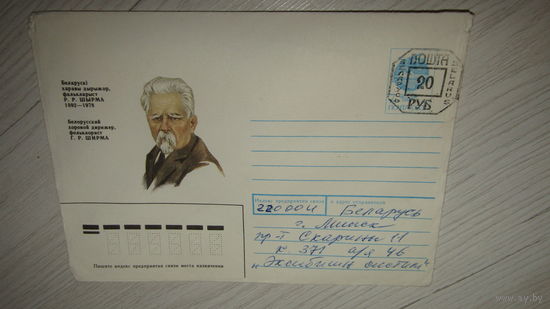 Беларускі
харавы дырыжор,
фалькларыст
Р. Р. ШЫРМА
1892—1978
Белорусский
хоровой дирижер,
фольклорист
Г. Р. ШИРМА
ПОШТА
20
РУБ
Индекс предприятия связи и адрес отправителя
220004 Беларусь
г. Минск
пр-т Скарины 11
к 371 а/я 46
Пишите индекс предприятия связи места назначения
ay.by